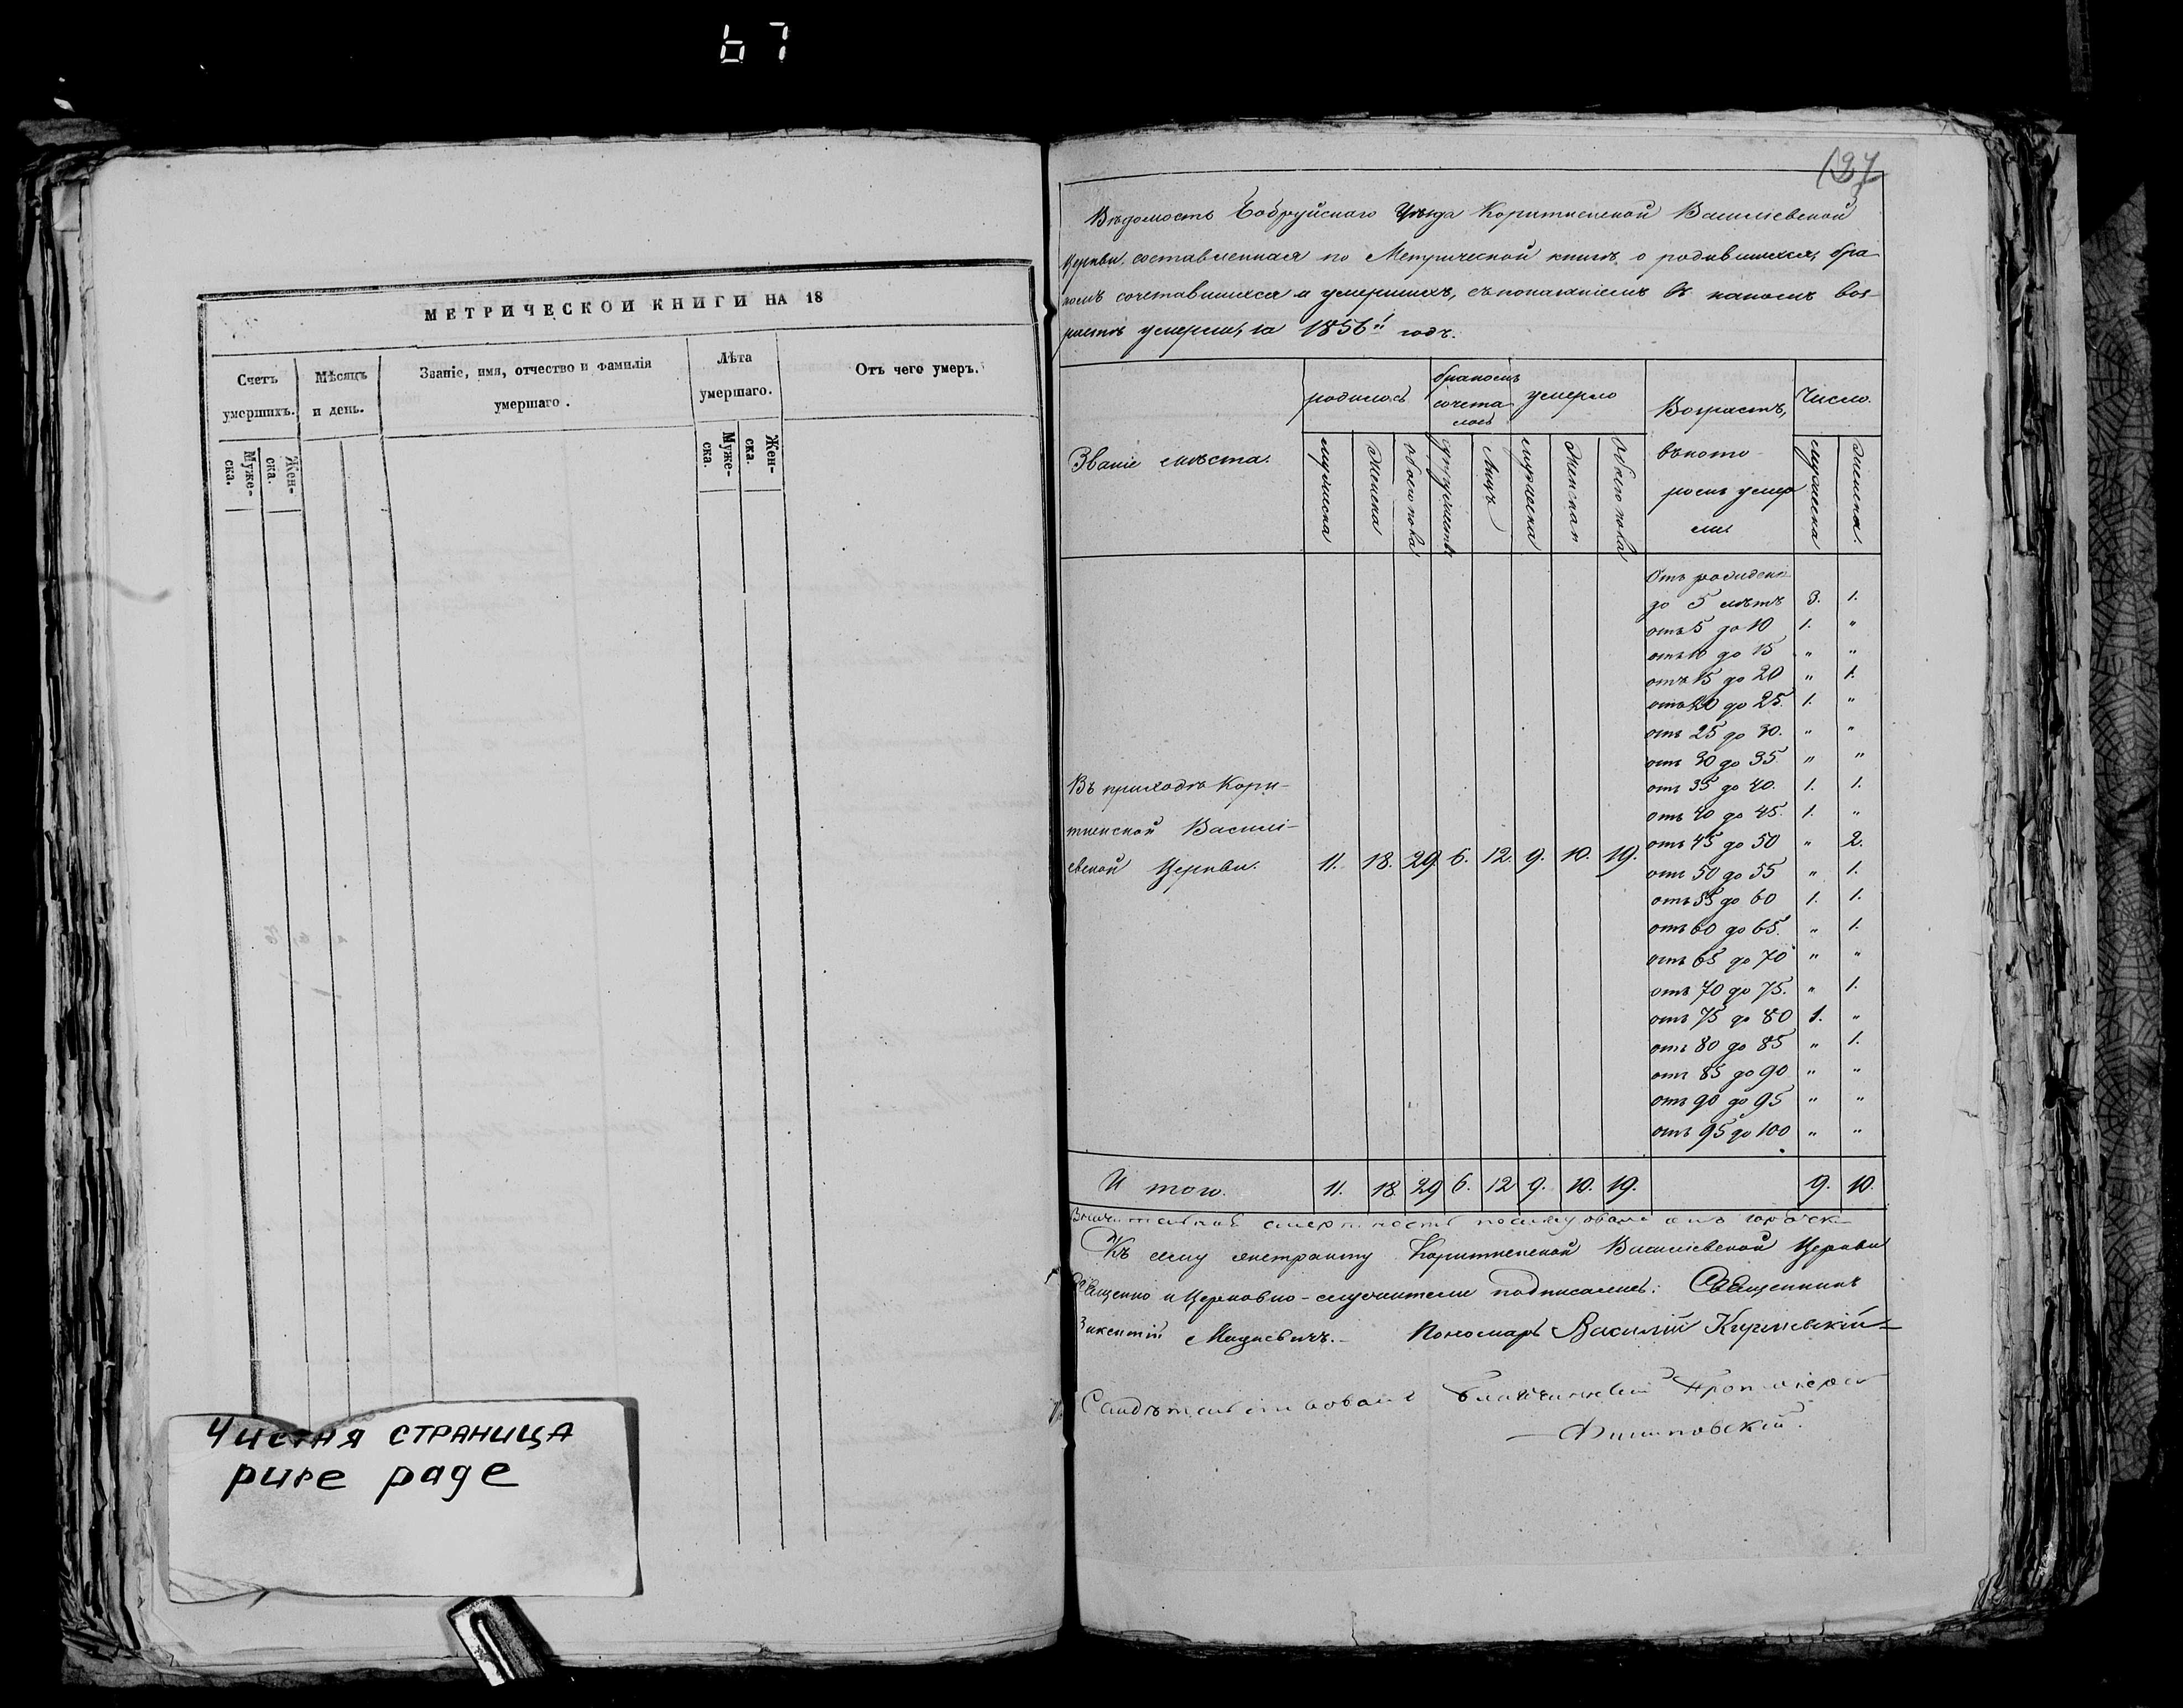 67
МЕТРИЧЕСКОЙ КНИГИ НА 18
Счетъ умершихъ.
Мѣсяцъ и день.
Званіе, имя, отчество и фамилія умершаго.
Лѣта умершаго.
Отъ чего умеръ.
Муже-ска.
Жен-ска.
Муже-ска.
Жен-ска.
Чистая страница
pure page
197
Вѣдомость Бобруйскаго Уѣзда Коритненской Василіевской
Церкви, составленная по Метрической книгѣ о родившихся, бра
комъ сочетавшихся и умершихъ, съ показаніемъ въ какомъ воз-
растѣ умерли, за 1856й годъ.
Званіе мѣста.
родилось
бракомъ сочета лось
умерло
Возрастъ, въ кото-ромъ умер ли.
Число.
мужеска
Женска
Обоего пола
супружествъ
Лицъ
мужеска
Женскаго
Обоего пола
мужеска
женска.
Отъ рожденія
до 5 лѣтъ 3. 1.
отъ 5 до 10 1. "
отъ 10 до 15 " "
отъ 15 до 20 " 1.
отъ 20 до 25. 1. "
отъ 25 до 30. " "
отъ 30 до 35. " "
отъ 35 до 40. 1. 1.
отъ 40 до 45. 1. "
отъ 45 до 50 " 2.
отъ 50 до 55 " 1.
отъ 55 до 60 1. 1.
отъ 60 до 65. " 1.
отъ 65 до 70 " "
отъ 70 до 75. " 1.
отъ 75 до 80 1. "
отъ 80 до 85 " 1.
отъ 85 до 90 " "
отъ 90 до 95 " "
отъ 95 до 100 " "
Въ приходѣ Кори-
тненской Василі-
евской Церкви. 11. 18. 29. 6. 12. 9. 10. 19.
И того. 11. 18 29 6. 12 9. 10. 19. 9. 10.
Къ сему экстракту Коритненской Василіевской Церкви
Священно и Церковно-служители подписались: Священникъ
Мацкевичъ. Пономарь Василій Киркевскій
Свидѣтельствовалъ Благочинный Протоіерей
Филиповскій.